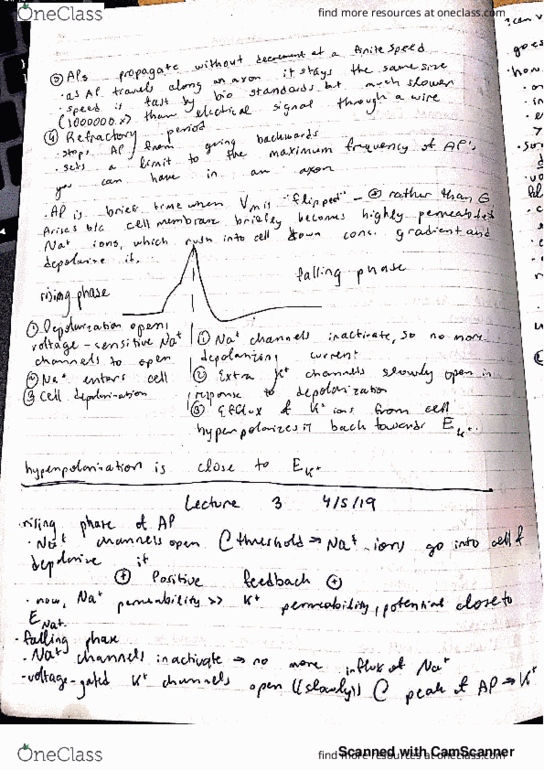 OneClass
find more resources at oneclass.com
③ APs propagate without decrement at a finite speed
· as AP travels along an axon it stays the same size
· speed is fast by bio standards but much slower
(1000000x) than electrical signal through a wire
④ Refractory period
· stops AP from going backwards
· sets a limit to the maximum frequency of AP's
you can have in an axon
· AP is brief time when Vm is "flipped" - ⊕ rather than ⊖
Arises b/c cell membrane briefly becomes highly permeable
Na+ ions, which rush into cell down conc. gradient and
depolarize it.
rising phase
falling phase
① Depolarization opens
voltage-sensitive Na+
channels to open
② Na+ enters cell
③ Cell depolarization
① Na+ channels inactivate, so no more
depolarizing current
② Extra K+ channels slowly open in
response to depolarization
③ Efflux of K+ ions from cell
hyperpolarizes it back towards EK+.
hyperpolarization is close to EK+
Lecture 3 4/5/19
· rising phase of AP
· Na+ channels open @ threshold → Na+ ions go into cell &
depolarize it
⊕ Positive feedback ⊕
· now, Na+ permeability >> K+ permeability, potential close to
ENa+
· falling phase
· Na+ channels inactivate → no more influx of Na+
· voltage-gated K+ channels open ((slowly)) @ peak of AP → K+
OneClass
find more resources at oneclass.com
Scanned with CamScanner